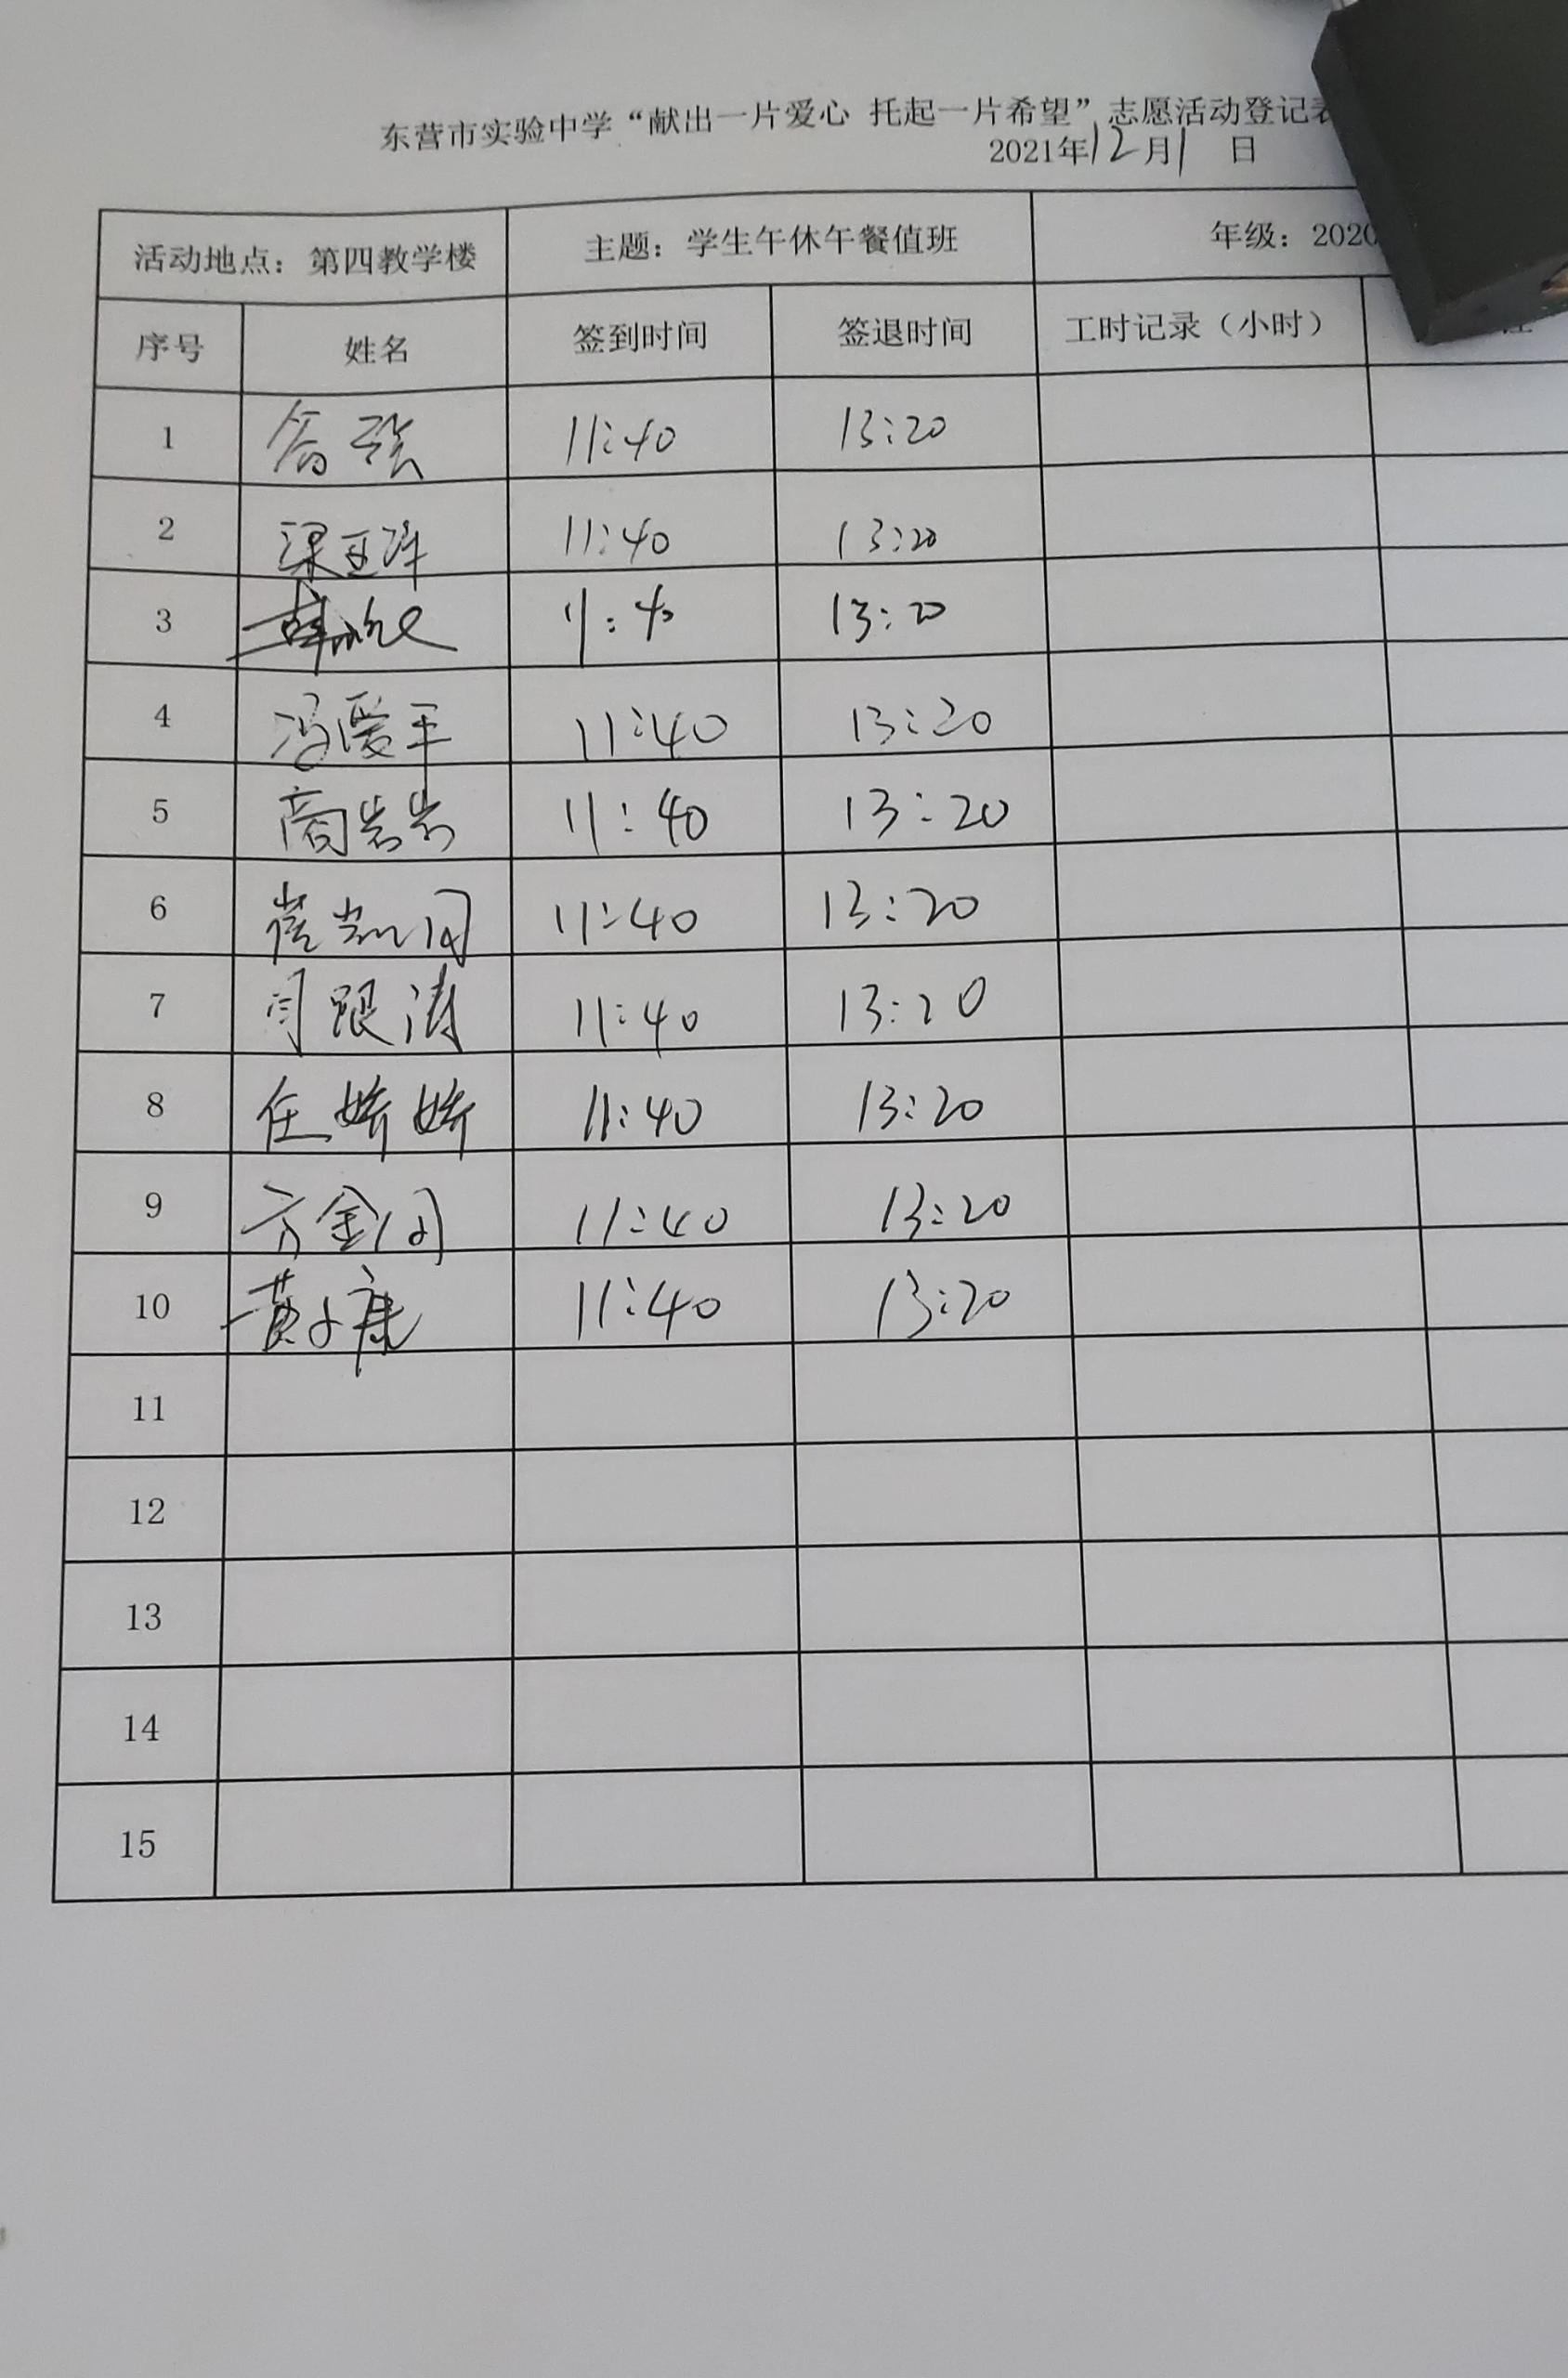 东营市实验中学“献出一片爱心 托起一片希望”志愿活动登记表
2021年12月1 日
活动地点：第四教学楼 主题：学生午休午餐值班 年级：2020
序号 姓名 签到时间 签退时间 工时记录（小时）
1 11:40 13:20
2 11:40 13:20
3 11:40 13:20
4 冯爱军 11:40 13:20
5 商岩岩 11:40 13:20
6 崔凯同 11:40 13:20
7 闫跟涛 11:40 13:20
8 任娇娇 11:40 13:20
9 方金同 11:40 13:20
10 黄小康 11:40 13:20
11
12
13
14
15